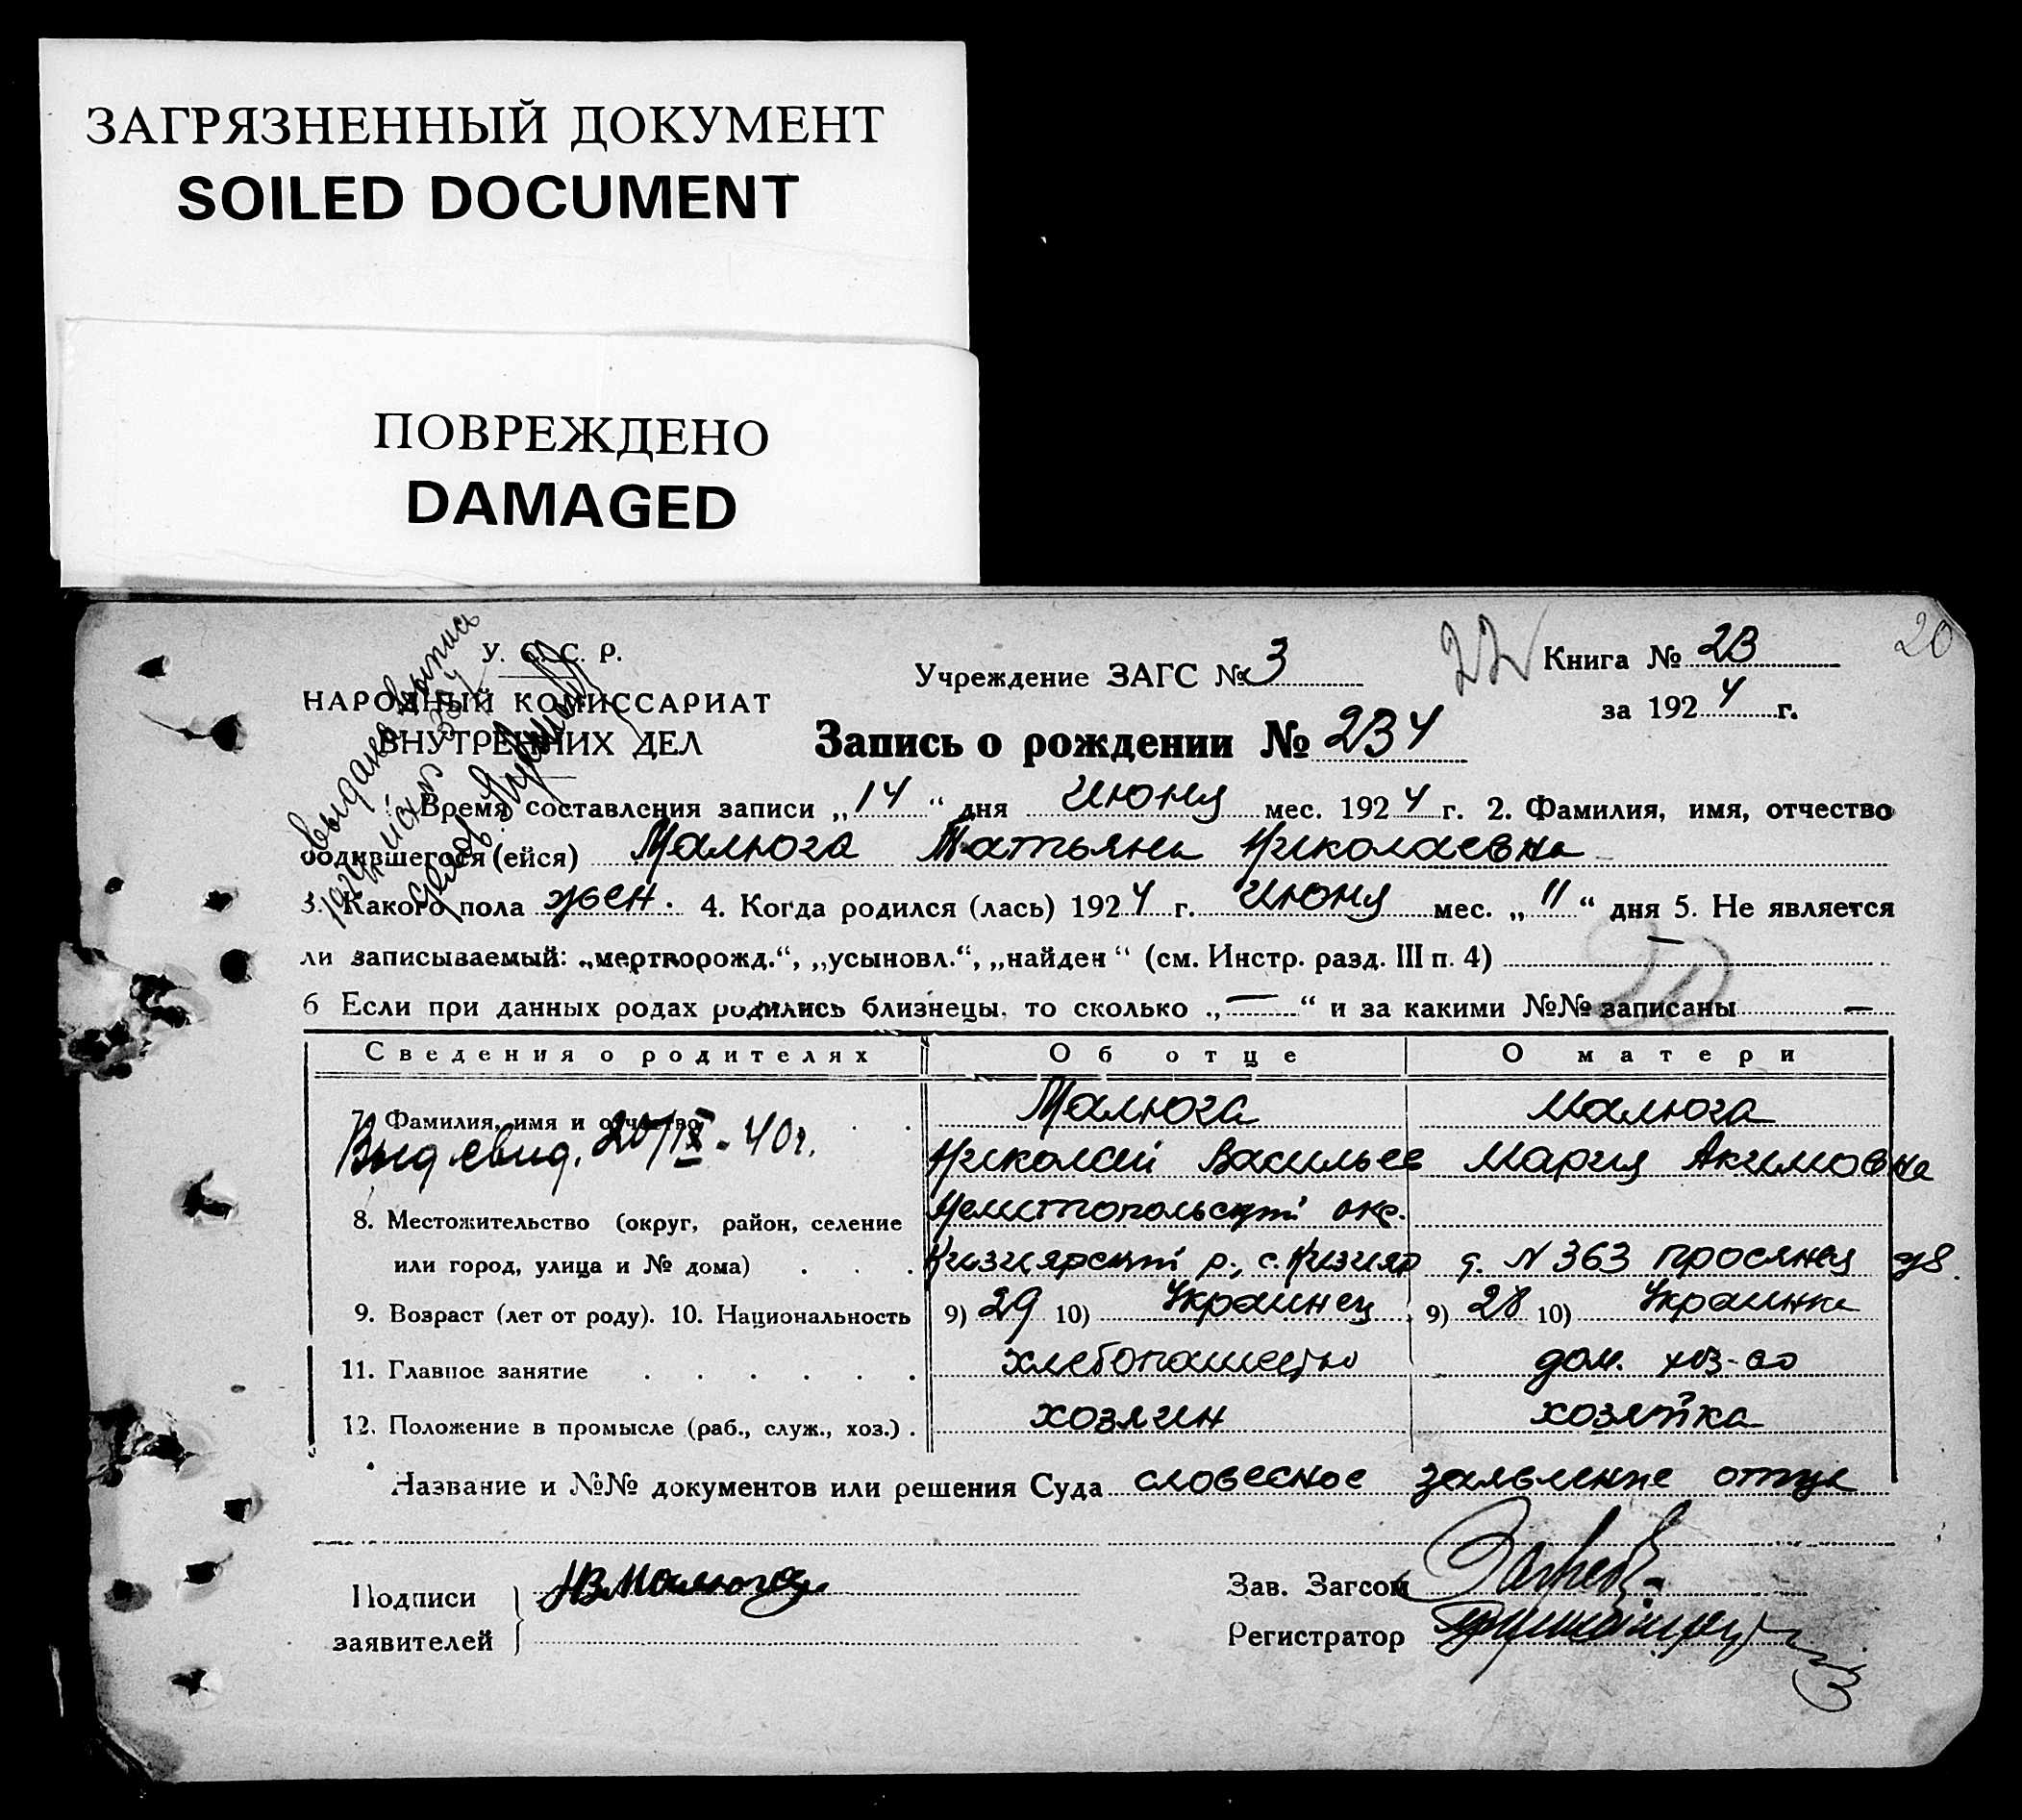 ЗАГРЯЗНЕННЫЙ ДОКУМЕНТ
SOILED DOCUMENT
ПОВРЕЖДЕНО
DAMAGED
20
У. С. С. Р.
НАРОДНЫЙ КОМИССАРИАТ
ВНУТРЕННИХ ДЕЛ
Учреждение ЗАГС № 3
22
Книга № 2В
за 1924 г.
Запись о рождении № 234
Время составления записи „14“ дня Июня мес. 1924 г. 2. Фамилия, имя, отчество
родившегося (ейся) Малюга Татьяна Николаевна
3. Какого пола жен. 4. Когда родился (лась) 1924 г. Июня мес. „11“ дня 5. Не является
ли записываемый: „мертворожд.“, „усыновл.“, „найден“ (см. Инстр. разд. III п. 4) —
20
6 Если при данных родах родились близнецы, то сколько „—“ и за какими №№ записаны —
Сведения о родителях Об отце О матери
7. Фамилия, имя и отчество Малюга Малюга
Выд свид. 20/IX - 40 г. Николай Васильев Мария Акимовна
8. Местожительство (округ, район, селение Мелитопольский окр.
или город, улица и № дома) Кизиярский р., с. Кизияр д. N 363 просяная
9. Возраст (лет от роду). 10. Национальность 9) 29 10) Украинец 9) 28 10) Украинка
11. Главное занятие хлебопашество дом. хоз-во
12. Положение в промысле (раб., служ., хоз.) хозяин хозяйка
Название и №№ документов или решения Суда словесное заявление отца
Подписи
заявителей
НВМалюга
Зав. Загсом
Регистратор